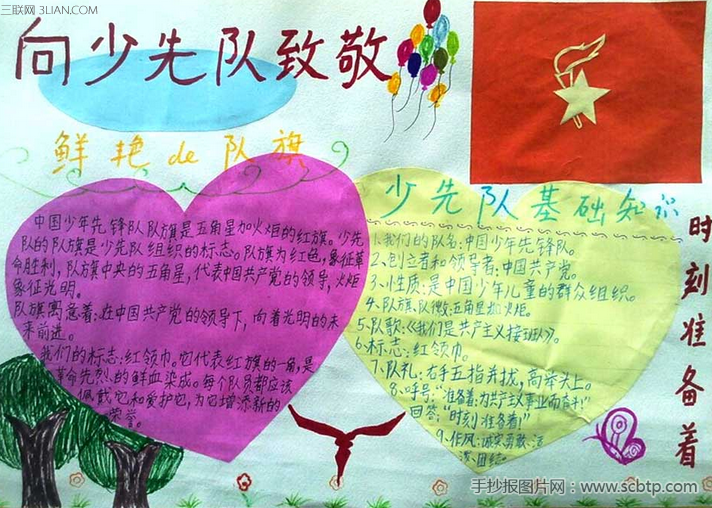 三联网 3LIAN.COM
向少先队致敬
鲜艳de队旗
中国少年先锋队队旗是五角星加火炬的红旗。少先
队的队旗是少先队组织的标志。队旗为红色，象征革
命胜利，队旗中央的五角星，代表中国共产党的领导，火炬
象征光明。
队旗寓意着：在中国共产党的领导下，向着光明的未
来前进。
我们的标志：红领巾。它代表红旗的一角，是
革命先烈的鲜血染成。每个队员都应该
佩戴它和爱护它，为它增添新的
荣誉。
少先队基础知识
1.我们的队名：中国少年先锋队。
2、创立者和领导者：中国共产党。
3、性质：是中国少年儿童的群众组织。
4、队旗、队徽：五角星加火炬。
5、队歌：《我们是共产主义接班人》。
6、标志：红领巾。
7、队礼：右手五指并拢，高举头上。
8、呼号：“准备着：为共产主义事业而奋斗！”
回答：“时刻准备着！”
9、作风：诚实、勇敢、活
泼、团结。
时刻准备着
手抄报图片网：www.scbtp.com